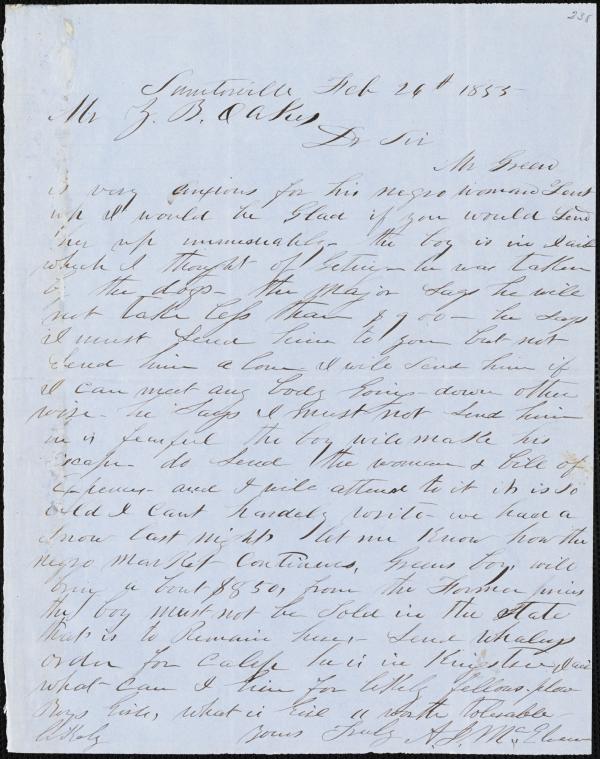 238
Sumterville Feb 26th 1855
Mr Z. B. Oakes
Dr Sir
Mr Green
is very anxious for his negro woman Sent
up I would be Glad if you would Send
her up immediately - the boy is in Jail
which I thought of Geting - he was taken
by the dogs - the Major Says he will
not take less than $900 - he Says
I must Send him to you but not
Send him alone I will Send him if
I can meet any body Going down other
wise - he Says I must not Send him
he is fearful the boy will make his
escape - do Send the woman & bill of
expences - and I will attend to it it is So
cold I Cant handely write - we had a
Snow last night let me Know how the
negro market Continues, Greens boy, will
bring a bout $850, from the Former prices
the boy must not be Sold in the State
that is to Remain here, - Send Whaleys
order for he is in Kingstree Jail
what can I Give for likely fellows - plow
Boys Girls, what is Girl a worth tolerable
likely Yours Truly A. J. McElveen